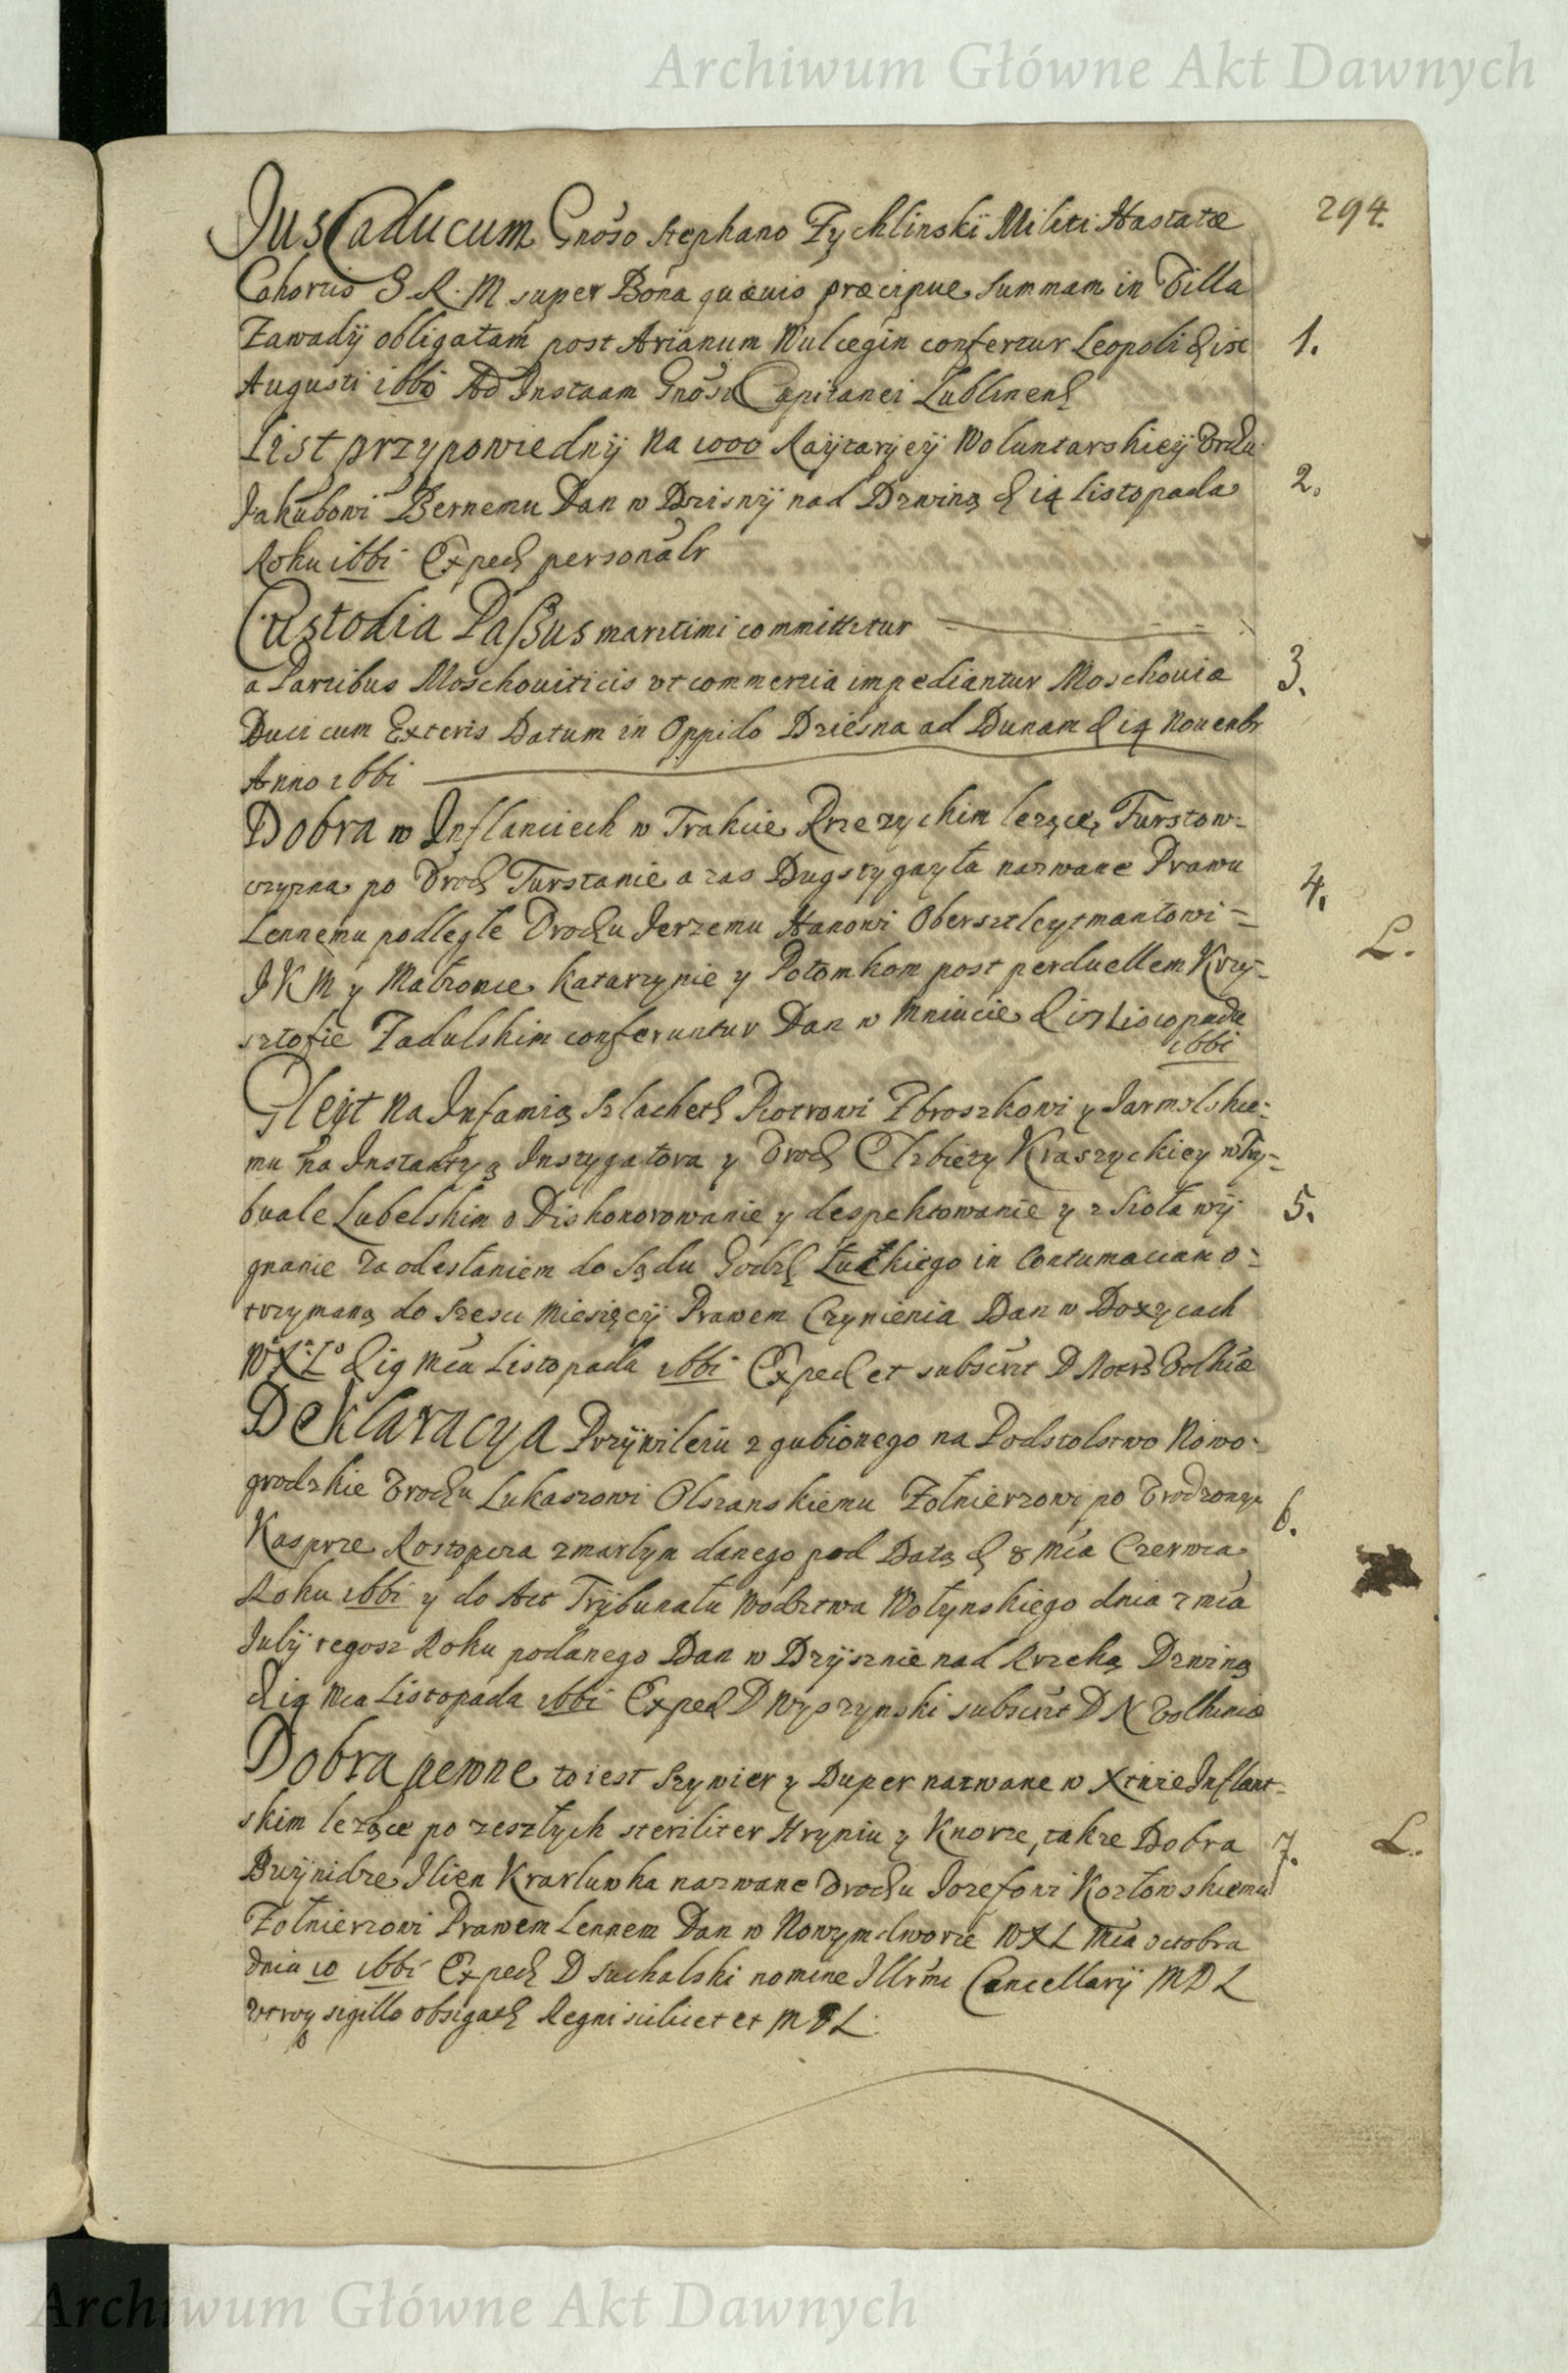 Archiwum Główne Akt Dawnych
294.
Jus Caducum Gnoso Stephano Zychlinski Militi Hastatæ
Cohortis S. R. M. super Bona quævis præcipue summam in Villa
Zawadÿ obligatam post Arianum Wulcegin confertur Leopoli d
1.
Augusti 1660 Ad Instaam Gnosi Capitanei Lublinens
List przypowiednÿ na 1000 Raÿtarÿeÿ Woluntarskieÿ Vrodz
2.
Jakubowi Bernemu Dan w Dzisnÿ nad Dzwiną d 14 Listopada
Roku 1661 Exped personalr
Custodia Passus maritimi committitur
3.
a Partibus Moschoviticis vt commertia impediantur Moschoviæ
Duci cum Exteris Datum in Oppido Driesna ad Dunam d 14 Nouembr
Anno 1661
Dobra w Inflanciech w Trakcie Rzezyckim lezące, Turstow-
czyzna po Vrodz Turstanie a zas Dugstygayta nazwane Prawu
4.
Lennemu podległe Vrodzu Jerzemu Hanowi Obersztleytmantowi
L.
J K M y Małzonce Katarzynie y Potomkom post perduellem Krzy-
sztofie Zadulskim conferuntur Dan w d Listopada
1661
Gleyt na Infamią Szlacheth Piotrowi Zbroszkowi y Jarmolskie-
mu na Instantyą Instygatora y Vrodz Elzbiety Kraszyckiey w Try-
bunale Lubelskim o Dishonorowanie y despektowanie y z Sioła wÿ
5.
gnanie za odesłaniem do Sądu Grodz Łuckiego in Contumaciam o-
trzymaną do szesci Miesięcÿ Prawem Czynienia Dan w
W X L d 19 Mca Listopada 1661 Exped et subscrit D Notrs Volhiæ
Deklaracya Przÿwileiu zgubionego na Podstolstwo Nowo-
grodzkie Vrodzu Lukaszowi Olszanskiemu Zołnierzowi po Vrodzonym
6.
Kasprze Rostopcza zmarłym danego pod Datą d 8 Mca Czerwca
Roku 1661 y do Act Trÿbunału Wodztwa Wołynskiego dnia 7 mca
Julÿ tegosz Roku podanego Dan w Drÿsznie nad Rzeką Dzwiną
d 14 Mca Listopada 1661 Exped D Wyszynski subscrit D N Volhiniæ
Dobra pewne to iest Szywier y Duper nazwane w Xtwie Inflant-
skim leżące po zeszłych steriliter Hryniu y Knorze, takze Dobra
7.
L.
nazwane Vrodzu Jozefowi Kozłowskiemu
Zołnierzowi Prawem Lennem Dan w Nowymdworze W X L Mca octobra
dnia 10 1661 Exped D Suchalski nomine Illrmi Cancellarÿ M D L
vtroq sigillo obsigatz Regni scilicet et M D L.
Archiwum Główne Akt Dawnych